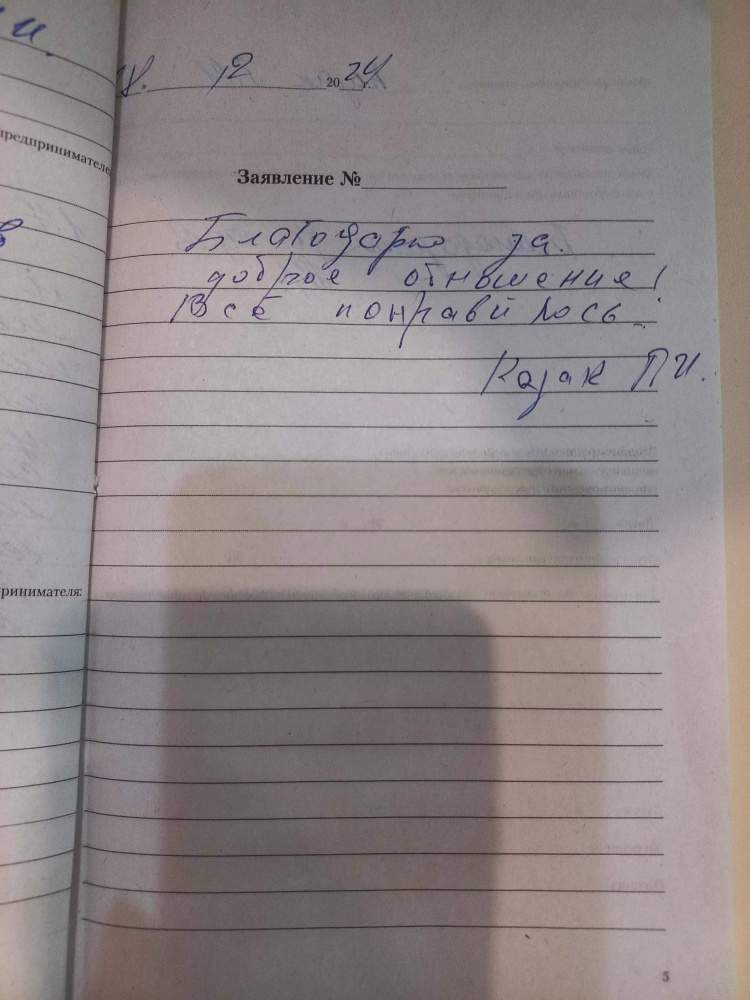 и.
предпринимателе
ринимателя:
12 2024 г.
Заявление №
Благодарю за
доброе отншения!
Всё понравилось.
Казак П.И.
5